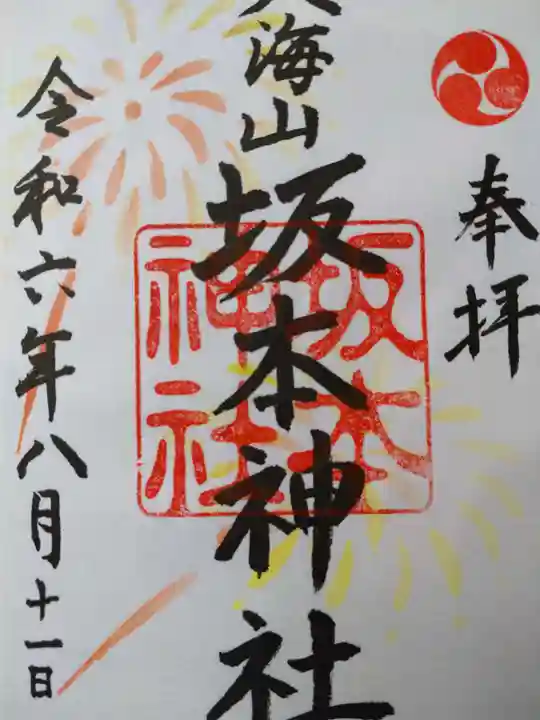 奉拝
海山
坂本神社
坂本
神社
令和六年八月十一日